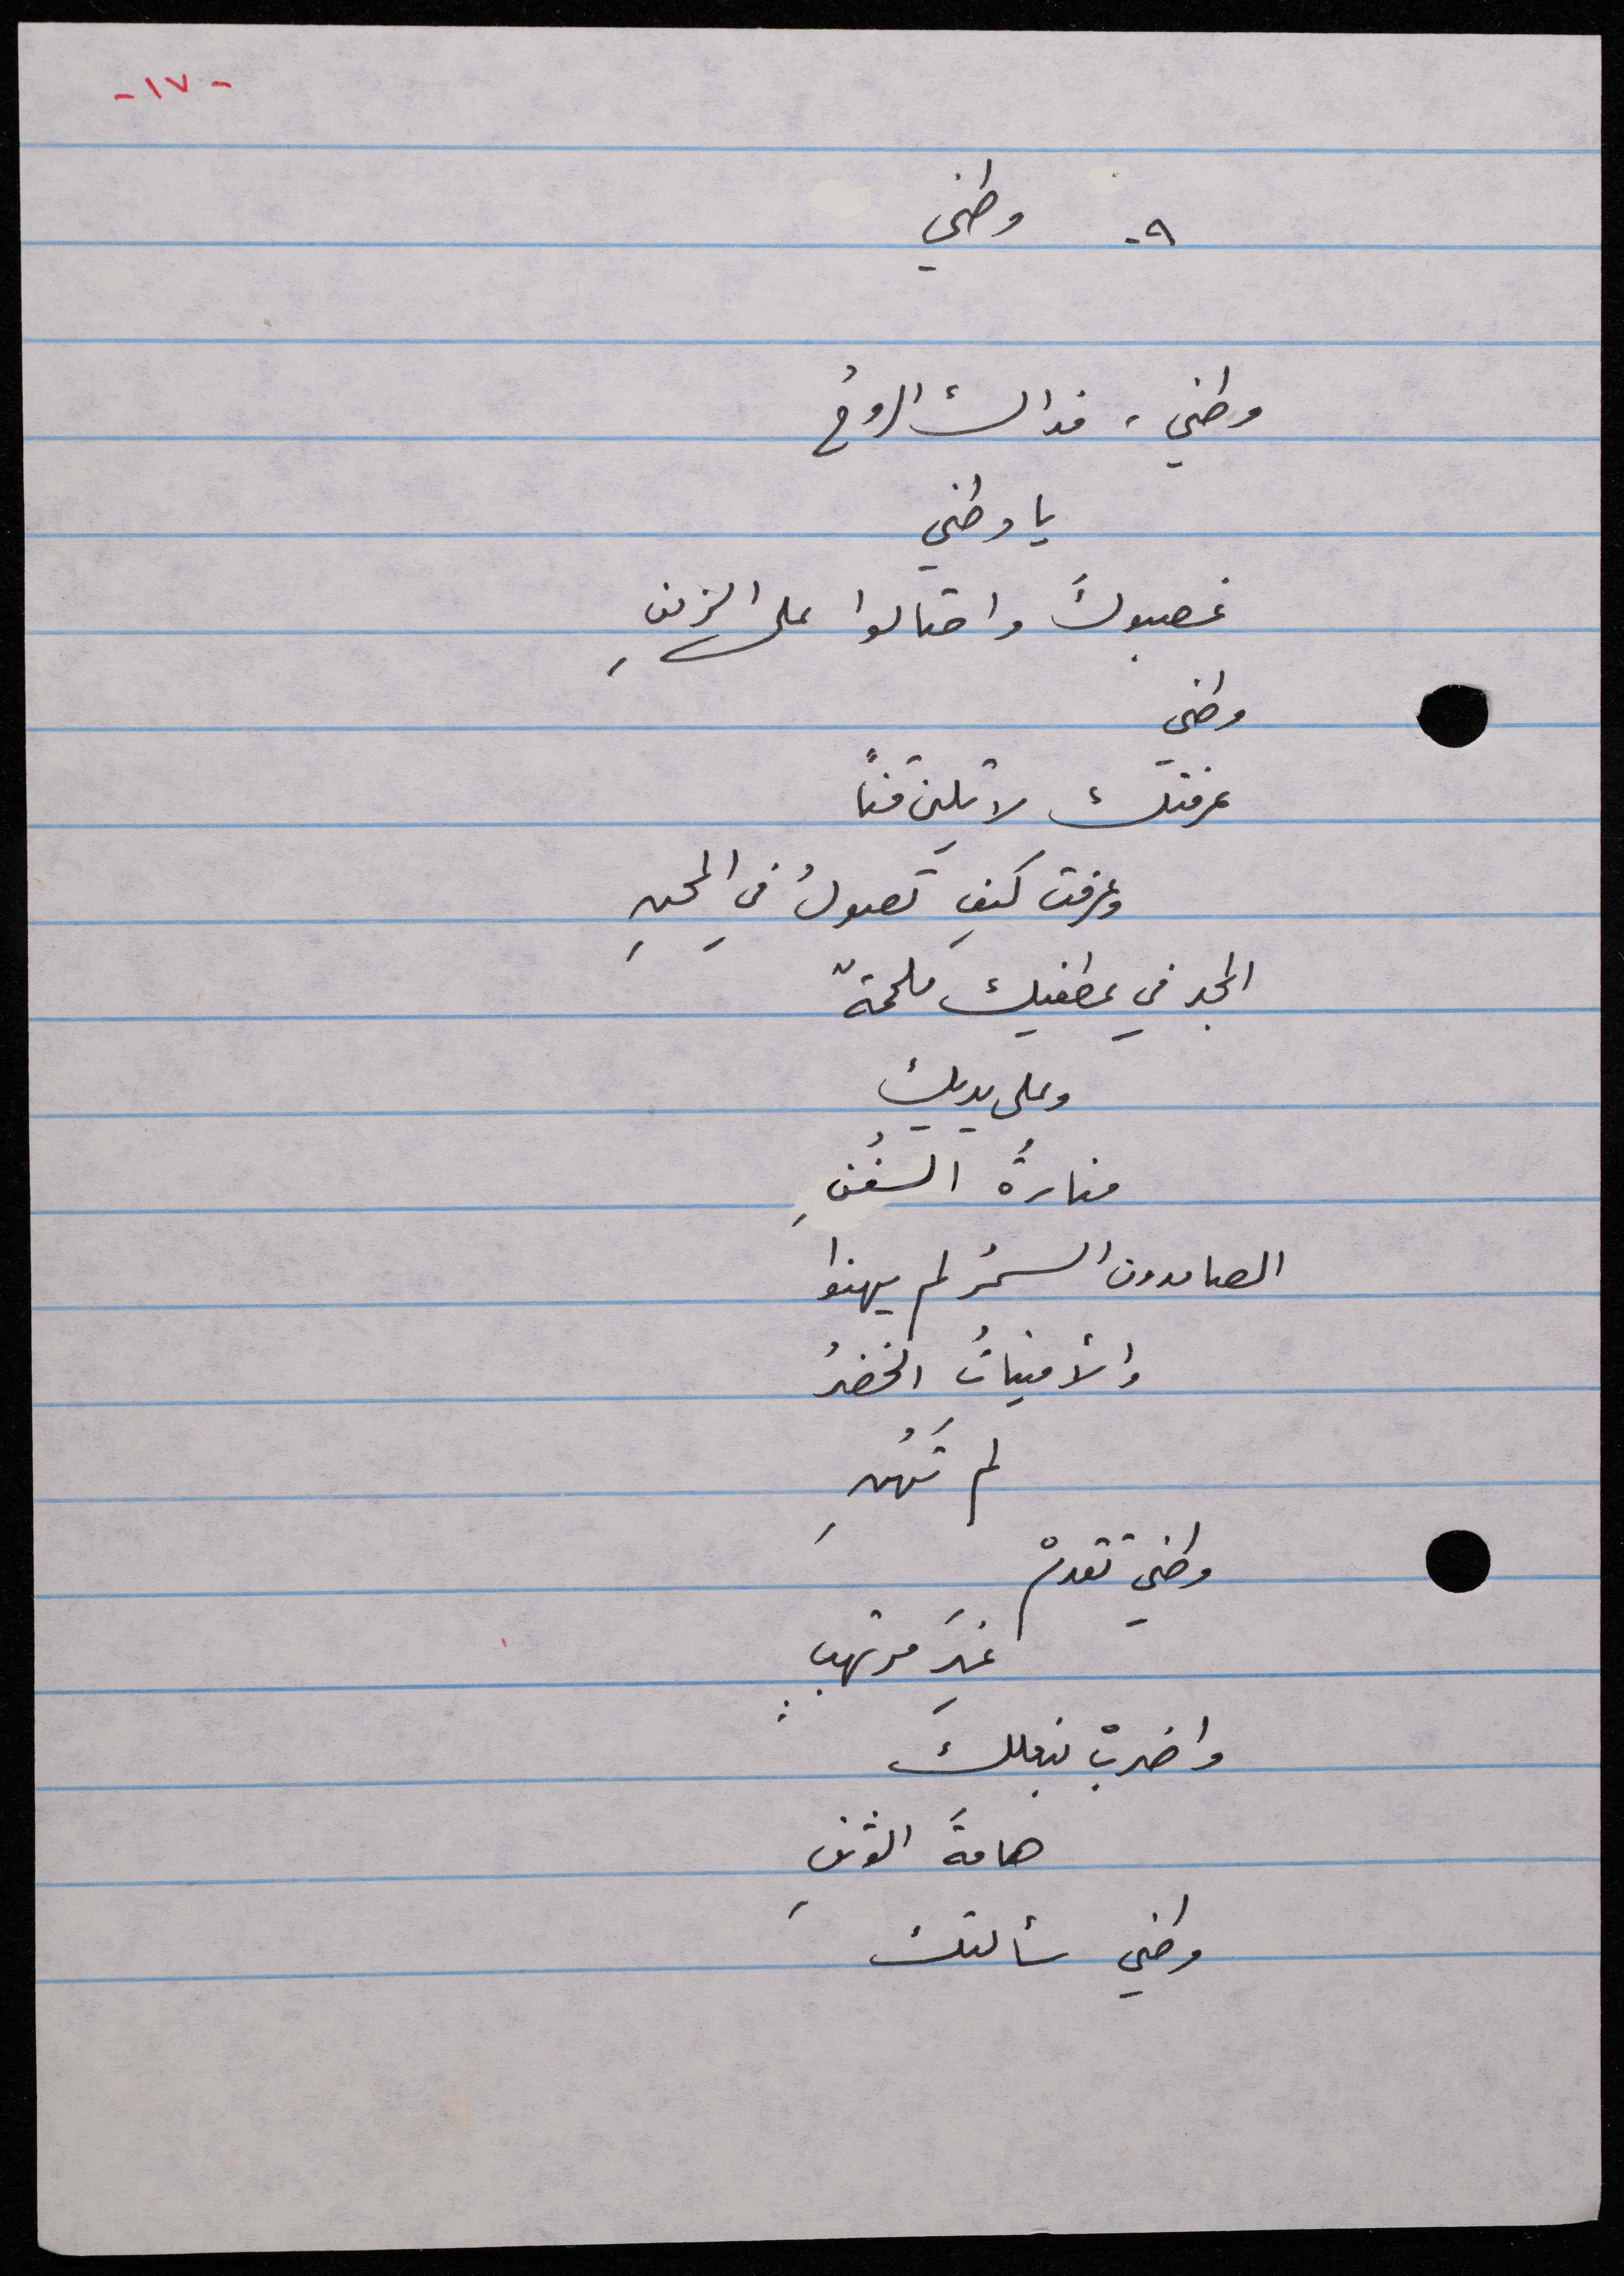 - ١٧ -
٩- وطني
وطني، فداك الروحُ
يا وطني
غصبوكَ واحتالوا على الزمنِ
وطني
عرفتك لا تلينُ قناً
وعرفت كيف تصولُ في المحنِ
المجد في عطفيك ملحمةٌ
وعلى يديك
منارةُ السفُنِ
الصامدون السمرُ لم يهنوا
والأمنياتُ الخضرُ
لم تَهُنِ
وطني تقدمْ
غيرَ مرتهبٍ
واضربْ بنعلك
هامةَ الوثنِ
وطني سألتك